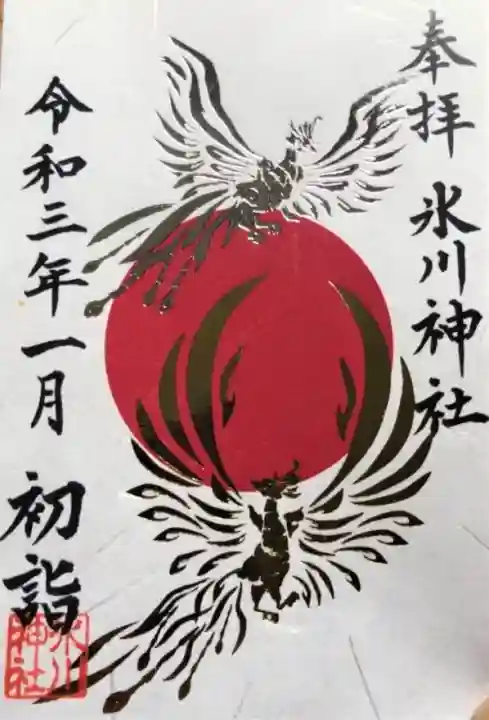 奉拝
氷川神社
令和三年一月
初詣
氷川
神社